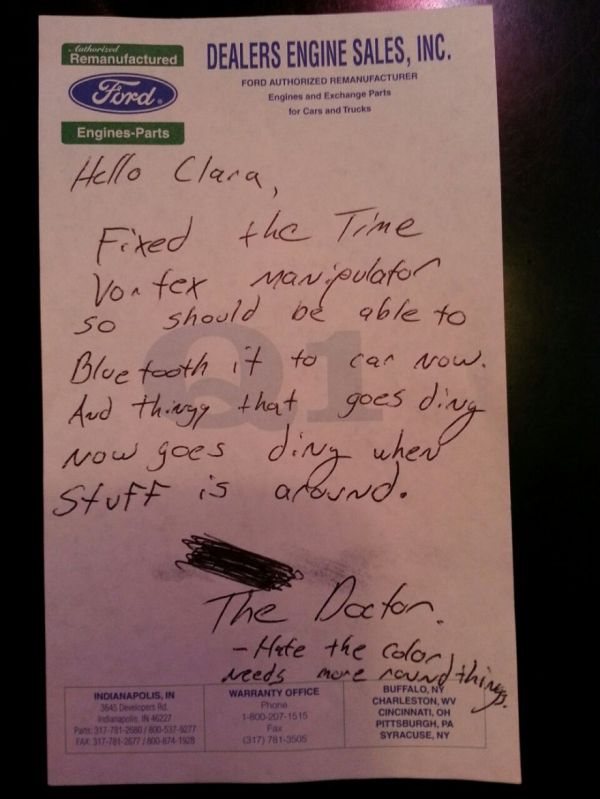 Authorized
Remanufactured
Ford
Engines-Parts
DEALERS ENGINE SALES, INC.
FORD AUTHORIZED REMANUFACTURER
Engines and Exchange Parts
for Cars and Trucks
Hello Clara,
Fixed the Time
Vortex manipulator
so should be able to
Bluetooth it to car now.
And thingy that goes ding
now goes ding when
stuff is around.
Q1
The Doctor.
- Hate the color,
needs more round things.
INDIANAPOLIS, IN
3645 Developers Rd.
Indianapolis, IN 46227
Parts: 317-781-2680 / 800-537-9277
FAX: 317-781-2677 / 800-874-1928
WARRANTY OFFICE
Phone
1-800-207-1515
Fax
(317) 781-3505
BUFFALO, NY
CHARLESTON, WV
CINCINNATI, OH
PITTSBURGH, PA
SYRACUSE, NY